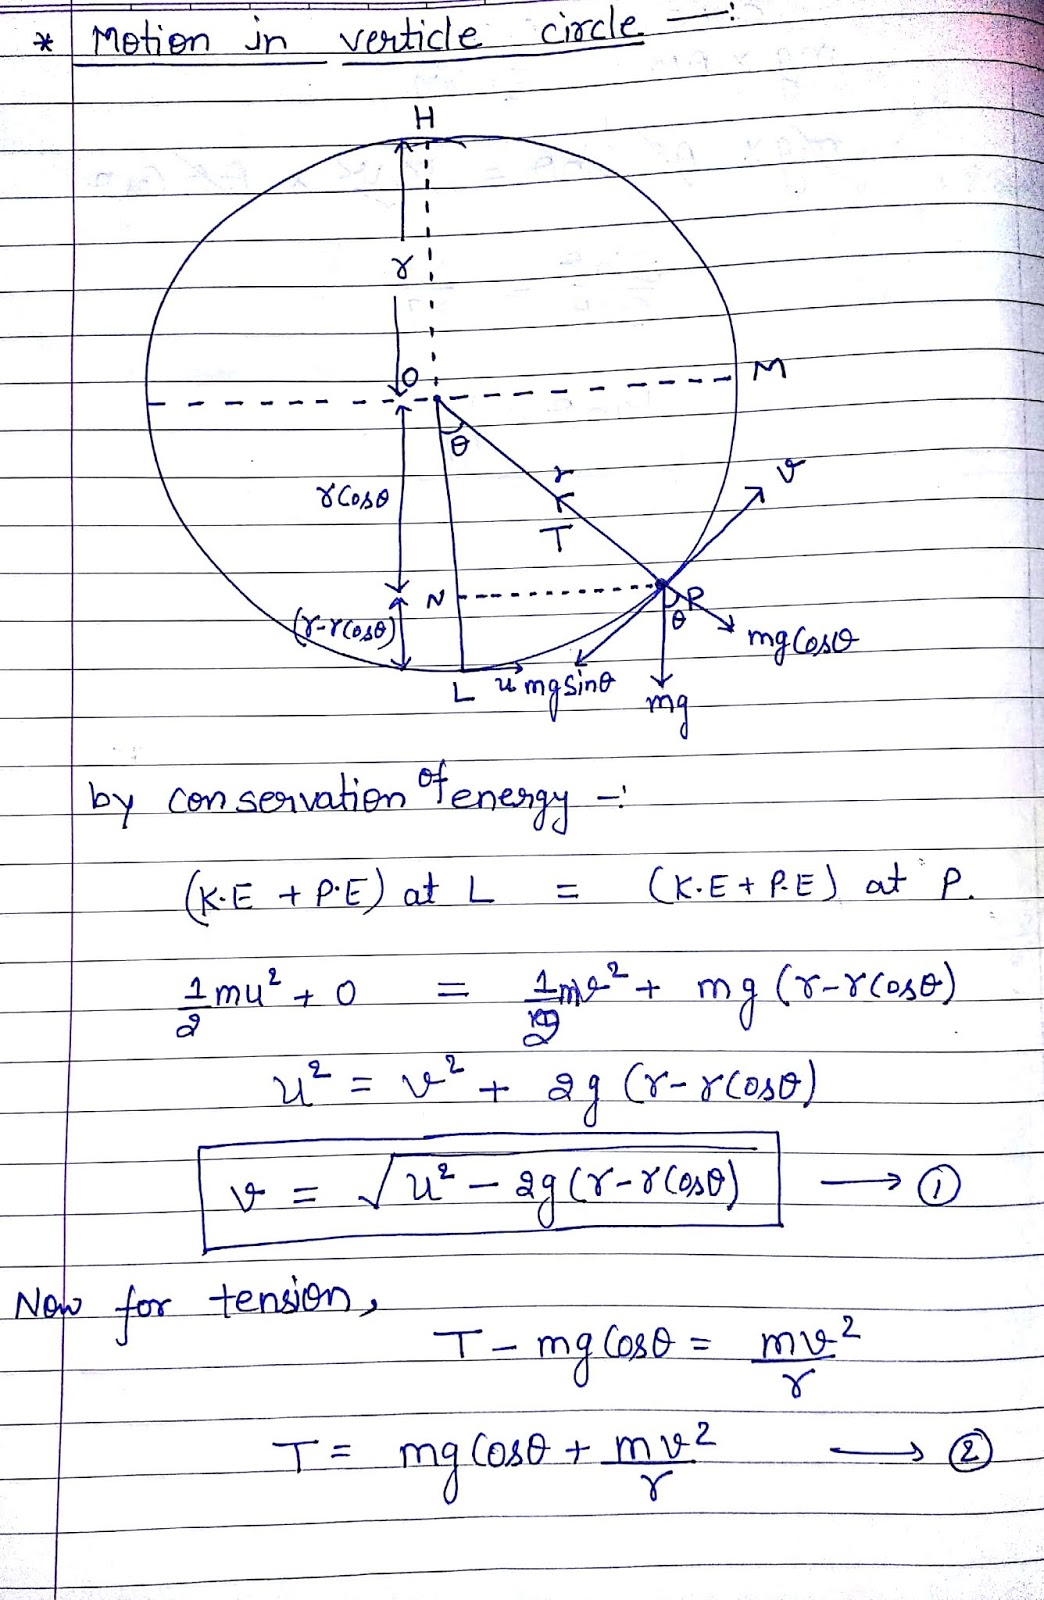 * Motion in verticle circle —:
H
r
O
M
θ
rcosθ
r
v
T
N
P
(r-rcosθ)
θ
mgcosθ
L u mgsinθ
mg
by conservation of energy -:
(K.E + P.E) at L = (K.E + P.E) at P.
1/2 mu² + 0 = 1/2 mv² + mg (r-rcosθ)
u² = v² + 2g (r-rcosθ)
v = √u² - 2g(r-rcosθ) → ①
Now for tension,
T - mgcosθ = mv²/r
T = mgcosθ + mv²/r → ②